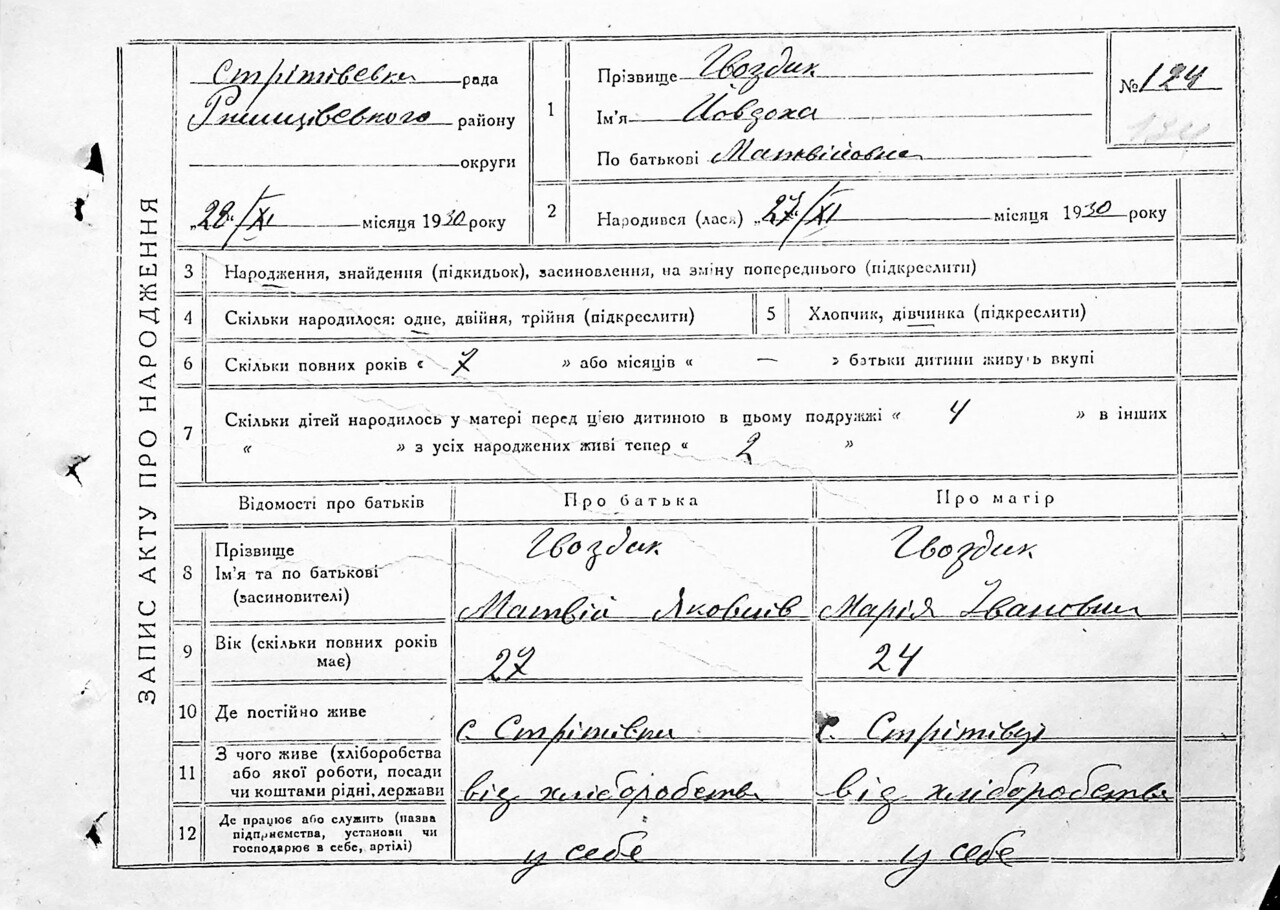 ЗАПИС АКТУ ПРО НАРОДЖЕННЯ
Стрітівська рада
Ржищівського району
округи
„28“/XI місяця 1930 року
1
Прізвище Гвоздик
Ім'я Йовдоха
По батькові Матвійовна
№ 124
134
2 Народився (лася) „27“/XI місяця 1930 року
3 Народження, знайдення (підкидьок), засиновлення, на зміну попереднього (підкреслити)
4 Скільки народилося: одне, двійня, трійня (підкреслити)
5 Хлопчик, дівчинка (підкреслити)
6 Скільки повних років « 7 » або місяців « — » батьки дитини живуть вкупі
7 Скільки дітей народилось у матері перед цією дитиною в цьому подружжі « 4 » в інших
« » з усіх народжених живі тепер « 2 »
Відомості про батьків Про батька Про матір
8 Прізвище
Ім'я та по батькові
(засиновителі)
Гвоздик
Матвій Яковлів
Гвоздик
Марія Івановна
9 Вік (скільки повних років
має)
27
24
10 Де постійно живе
с. Стрітівка
с. Стрітівці
11 З чого живе (хліборобства
або якої роботи, посади
чи коштами рідні, держави
від хліборобства
від хліборобства
12 Де працює або служить (назва
підприємства, установи чи
господарює в себе, артілі)
у себе
у себе